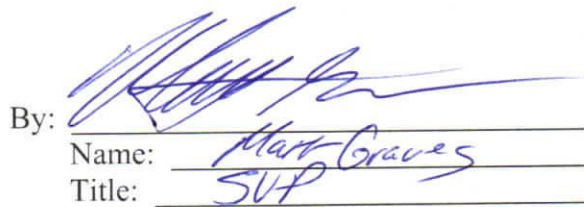 By:
Name: Mark Graves
Title: SVP